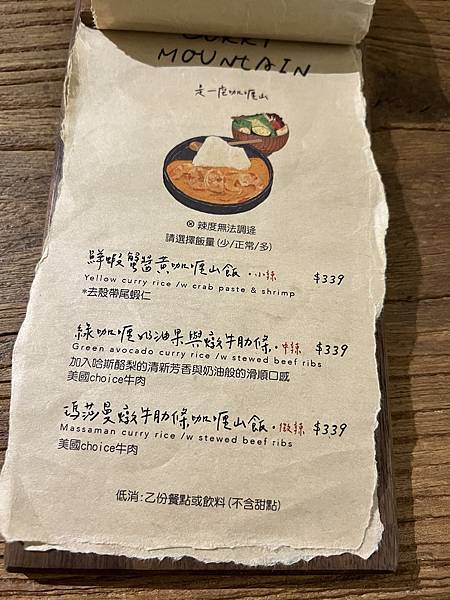 CURRY
MOUNTAIN
走一座咖喱山
⊗ 辣度無法調整
請選擇飯量 (少/正常/多)
鮮蝦蟹醬黃咖喱山飯・小辣 $339
Yellow curry rice /w crab paste & shrimp
*去殼帶尾蝦仁
綠咖喱奶油果與燉牛肋條・中辣 $339
Green avocado curry rice /w stewed beef ribs
加入哈斯酪梨的清新芳香與奶油般的滑順口感
美國choice牛肉
瑪莎曼燉牛肋條咖喱山飯・微辣 $339
Massaman curry rice /w stewed beef ribs
美國choice牛肉
低消:乙份餐點或飲料 (不含甜點)